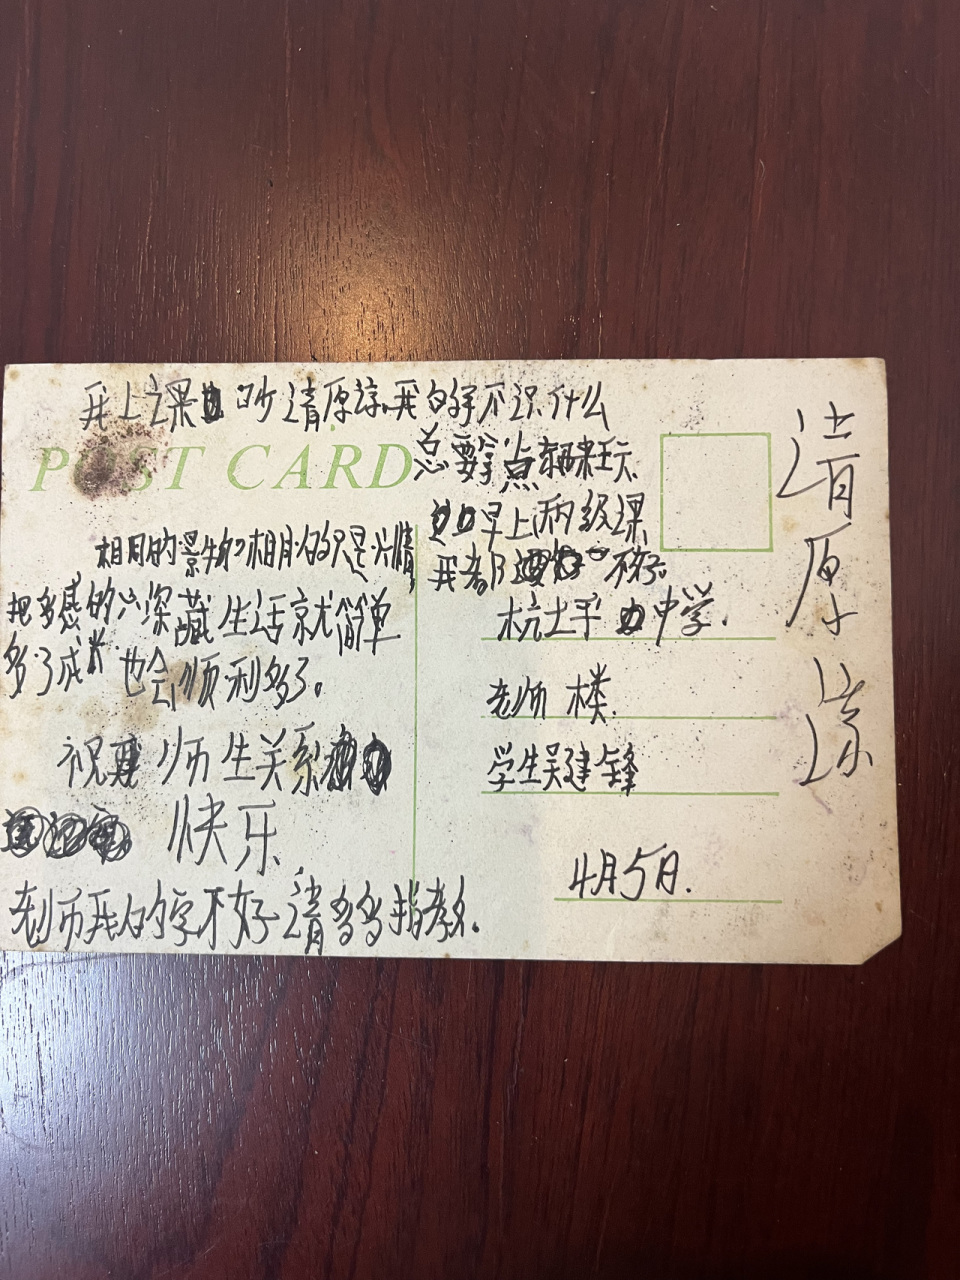 我上课吵请原谅.我的字不识什么
POST CARD
总要拿点东西来玩.
早上两级课
我都不好.
相同的景物相同的只是片情
把多感的心深藏生活就简单
多了成长也会顺利多了。
祝师生关系
快乐
老师我的字不好请多多指教.
杭士平中学.
老师 楼.
学生吴建锋
4月5日.
请原谅